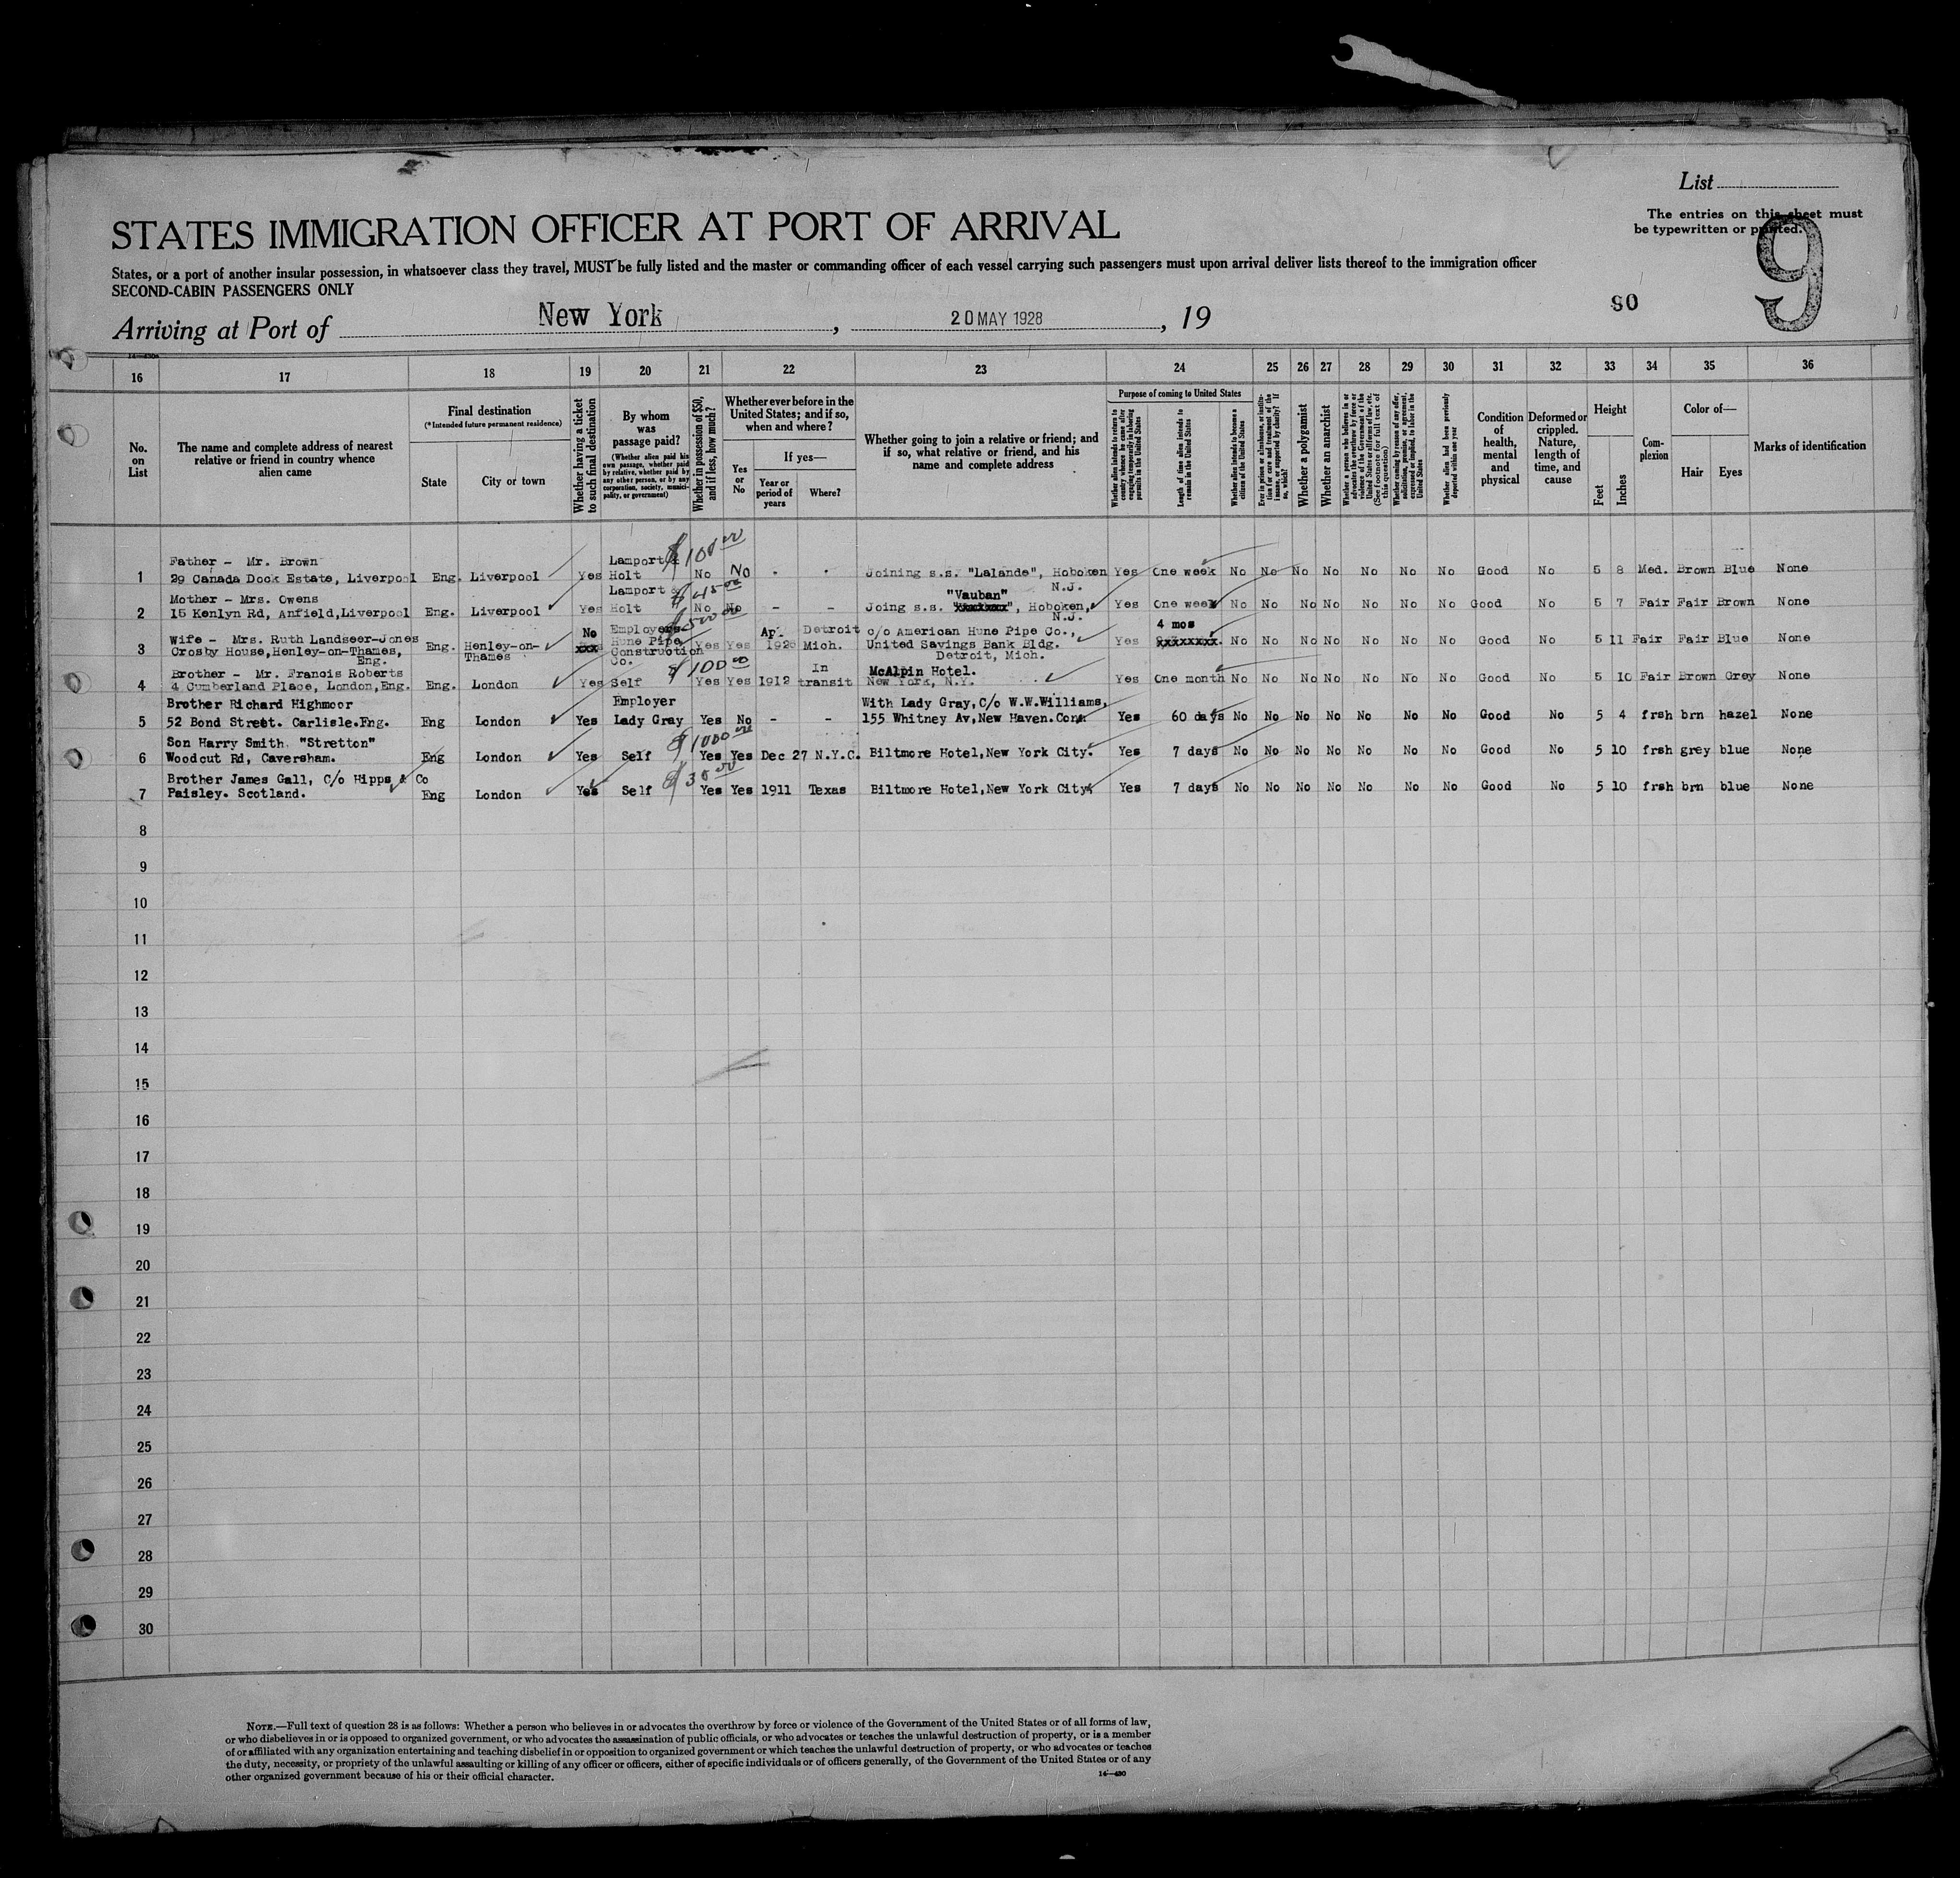 List
The entries on this sheet must
be typewritten or printed.
9
STATES IMMIGRATION OFFICER AT PORT OF ARRIVAL
States, or a port of another insular possession, in whatsoever class they travel, MUST be fully listed and the master or commanding officer of each vessel carrying such passengers must upon arrival deliver lists thereof to the immigration officer
SECOND-CABIN PASSENGERS ONLY
80
Arriving at Port of New York, 20 MAY 1928, 19
16 17 18 19 20 21 22 23 24 25 26 27 28 29 30 31 32 33 34 35 36
No. on List
The name and complete address of nearest relative or friend in country whence alien came
Final destination
(*Intended future permanent residence)
State
City or town
Whether having a ticket to such final destination
By whom was passage paid?
(Whether alien paid his own passage, whether paid by relative, whether paid by any other person, or by any corporation, society, municipality, or government)
Whether in possession of $50, and if less, how much?
Whether ever before in the United States; and if so, when and where?
Yes or No
If yes—
Year or period of years
Where?
Whether going to join a relative or friend; and if so, what relative or friend, and his name and complete address
Purpose of coming to United States
Whether alien intends to return to country whence he came after engaging temporarily in laboring pursuits in the United States
Length of time alien intends to remain in the United States
Whether alien intends to become a citizen of the United States
Ever in prison or almshouse, or institution for care and treatment of the insane, or supported by charity? If so, which?
Whether a polygamist
Whether an anarchist
Whether a person who believes in or advocates the overthrow by force or violence of the Government of the United States or all forms of law, etc. (See footnote for full text of this question)
Whether coming by reason of any offer, solicitation, promise, or agreement, expressed or implied, to labor in the United States
Whether alien had been previously deported within one year
Condition of health, mental and physical
Deformed or crippled. Nature, length of time, and cause
Height
Feet
Inches
Complexion
Color of—
Hair
Eyes
Marks of identification
Father - Mr. Brown Lamport & $100 00
1 29 Canada Dock Estate, Liverpool Eng. Liverpool Yes Holt No No Joining s.s. "Lalande", Hoboken Yes One week No No No No No No No Good No 5 8 Med. Brown Blue None
Mother - Mrs. Owens Lamport & $45 00 "Vauban" N.J.
2 15 Kenlyn Rd, Anfield,Liverpool Eng. Liverpool Yes Holt No No - - Joing s.s. xxxxxxx", Hoboken, Yes One week No No No No No No No Good No 5 7 Fair Fair Brown None
N.J.
Wife - Mrs. Ruth Landseer-Jones No Employers $500 00 Ap. Detroit c/o American Hune Pipe Co., 4 mos
3 Crosby House,Henley-on-Thames, Eng. Eng. Henley-on-Thames xxx Hune Pipe Construction Co. Yes Yes Mich. United Savings Bank Bldg. Detroit, Mich. Yes xxxxxxxx. No No No No No No No Good No 5 11 Fair Fair Blue None
Brother - Mr. Francis Roberts $100 00 In McAlpin Hotel.
4 4 Cumberland Place, London,Eng. Eng. London Yes Self Yes Yes 1912 transit New York, N.Y. Yes One month No No No No No No No Good No 5 10 Fair Brown Grey None
Brother Richard Highmoor Employer With Lady Gray,C/o W.W.Williams,
5 52 Bond Street. Carlisle.Eng. Eng London Yes Lady Gray Yes No - - 155 Whitney Av,New Haven.Conn Yes 60 days No No No No No No No Good No 5 4 frsh brn hazel None
Son Harry Smith. "Stretton" $1000 00
6 Woodcut Rd, Caversham. Eng London Yes Self Yes Yes Dec 27 N.Y.C. Biltmore Hotel,New York City. Yes 7 days No No No No No No No Good No 5 10 frsh grey blue None
Brother James Gall, C/o Hipps & Co $35 00
7 Paisley. Scotland. Eng London Yes Self Yes Yes 1911 Texas Biltmore Hotel,New York City. Yes 7 days No No No No No No No Good No 5 10 frsh brn blue None
8
9
10
11
12
13
14
15
16
17
18
19
20
21
22
23
24
25
26
27
28
29
30
NOTE.—Full text of question 28 is as follows: Whether a person who believes in or advocates the overthrow by force or violence of the Government of the United States or of all forms of law,
or who disbelieves in or is opposed to organized government, or who advocates the assassination of public officials, or who advocates or teaches the unlawful destruction of property, or is a member
of or affiliated with any organization entertaining and teaching disbelief in or opposition to organized government or which teaches the unlawful destruction of property, or who advocates or teaches
the duty, necessity, or propriety of the unlawful assaulting or killing of any officer or officers, either of specific individuals or of officers generally, of the Government of the United States or of any
other organized government because of his or their official character.
14—430